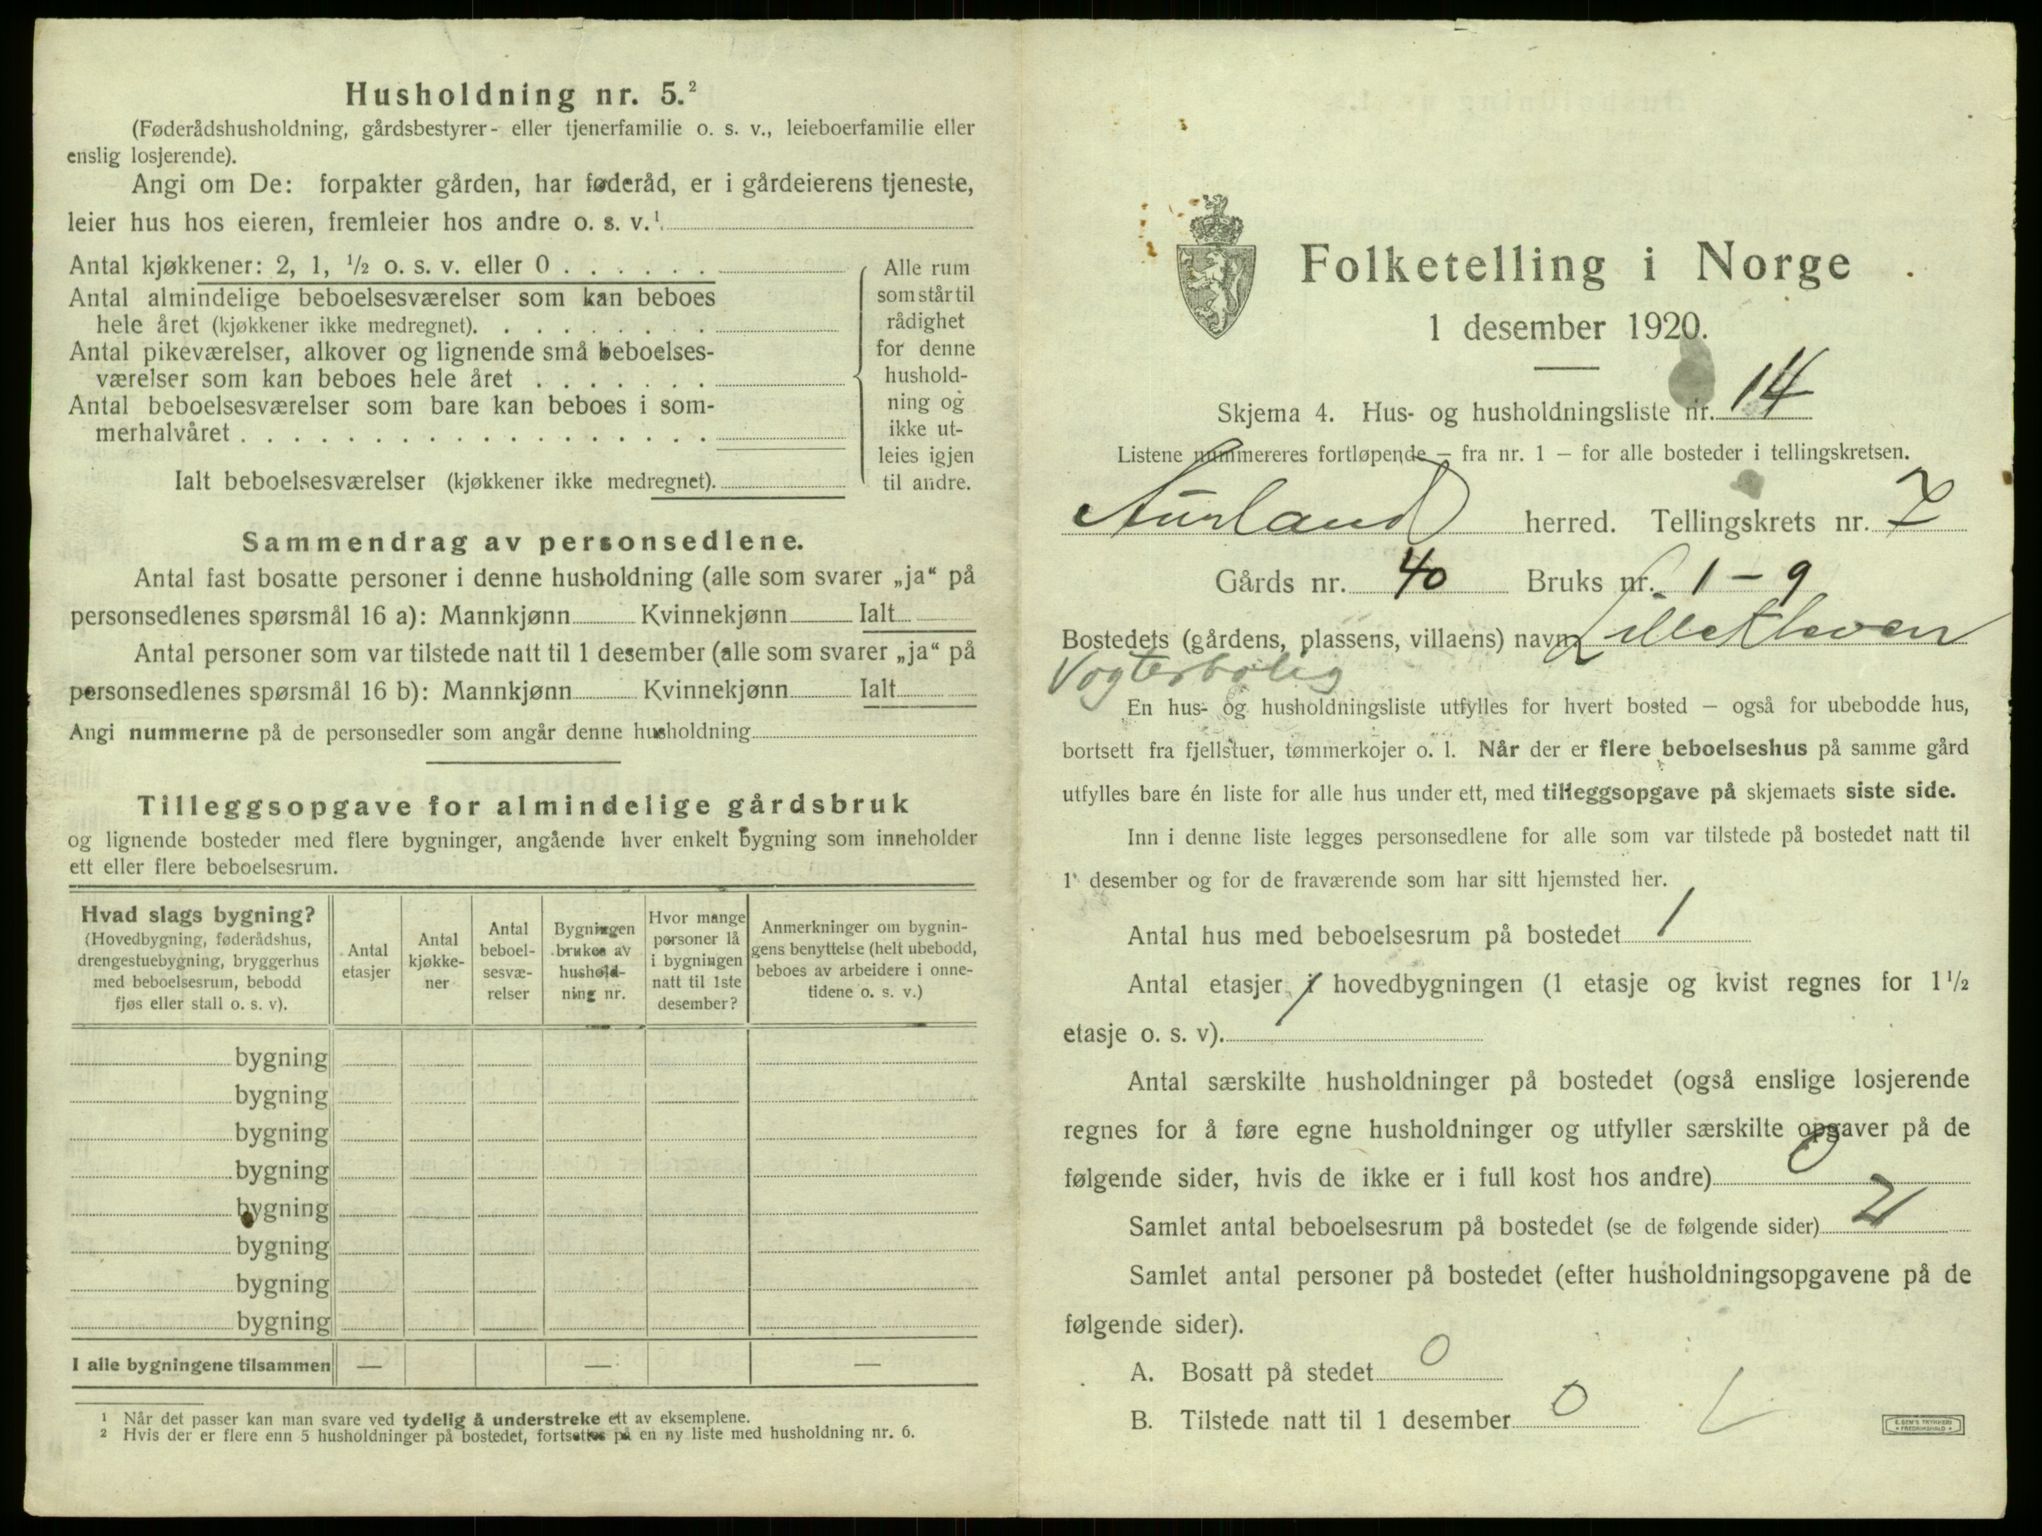 Husholdning nr. 5.²
(Føderådshusholdning, gårdsbestyrer- eller tjenerfamilie o. s. v., leieboerfamilie eller
enslig losjerende).
Angi om De: forpakter gården, har føderåd, er i gårdeierens tjeneste,
leier hus hos eieren, fremleier hos andre o. s. v.¹
Antal kjøkkener: 2, 1, ½ o. s. v. eller 0 . . . . . .
Antal almindelige beboelsesværelser som kan beboes
hele året (kjøkkener ikke medregnet). . . . . . . . .
Antal pikeværelser, alkover og lignende små beboelses-
værelser som kan beboes hele året . . . . . . .
Antal beboelsesværelser som bare kan beboes i som-
merhalvåret . . . . . . . . . . . . . . . . . .
Alle rum
som står til
rådighet
for denne
hushold-
ning og
ikke ut-
leies igjen
til andre.
Ialt beboelsesværelser (kjøkkener ikke medregnet).
Sammendrag av personsedlene.
Antal fast bosatte personer i denne husholdning (alle som svarer „ja“ på
personsedlenes spørsmål 16 a): Mannkjønn Kvinnekjønn Ialt
Antal personer som var tilstede natt til 1 desember (alle som svarer „ja“ på
personsedlenes spørsmål 16 b): Mannkjønn Kvinnekjønn Ialt
Angi nummerne på de personsedler som angår denne husholdning
Tilleggsopgave for almindelige gårdsbruk
og lignende bosteder med flere bygninger, angående hver enkelt bygning som inneholder
ett eller flere beboelsesrum.
Hvad slags bygning?
(Hovedbygning, føderådshus,
drengestuebygning, bryggerhus
med beboelsesrum, bebodd
fjøs eller stall o. s. v).
Antal
etasjer
Antal
kjøkke-
ner
Antal
beboel-
sesvæ-
relser
Bygningen
brukes av
hushold-
ning nr.
Hvor mange
personer lå
i bygningen
natt til 1ste
desember?
Anmerkninger om bygnin-
gens benyttelse (helt ubebodd,
beboes av arbeidere i onne-
tidene o. s. v.)
bygning
bygning
bygning
bygning
bygning
bygning
bygning
bygning
I alle bygningene tilsammen — — —
¹ Når det passer kan man svare ved tydelig å understreke ett av eksemplene.
² Hvis der er flere enn 5 husholdninger på bostedet, fortsettes på en ny liste med husholdning nr. 6.
Folketelling i Norge
1 desember 1920.
Skjema 4. Hus- og husholdningsliste nr. 14
Listene nummereres fortløpende – fra nr. 1 – for alle bosteder i tellingskretsen.
Aurland herred. Tellingskrets nr. 7
Gårds nr. 40 Bruks nr. 1 – 9
Bostedets (gårdens, plassens, villaens) navn Lillekleven
Vogterbolig
En hus- og husholdningsliste utfylles for hvert bosted – også for ubebodde hus,
bortsett fra fjellstuer, tømmerkojer o. l. Når der er flere beboelseshus på samme gård
utfylles bare én liste for alle hus under ett, med tilleggsopgave på skjemaets siste side.
Inn i denne liste legges personsedlene for alle som var tilstede på bostedet natt til
1 desember og for de fraværende som har sitt hjemsted her.
Antal hus med beboelsesrum på bostedet 1
Antal etasjer i hovedbygningen (1 etasje og kvist regnes for 1½
etasje o. s. v). 1
Antal særskilte husholdninger på bostedet (også enslige losjerende
regnes for å føre egne husholdninger og utfyller særskilte opgaver på de
følgende sider, hvis de ikke er i full kost hos andre) 0
Samlet antal beboelsesrum på bostedet (se de følgende sider) 2
Samlet antal personer på bostedet (efter husholdningsopgavene på de
følgende sider).
A. Bosatt på stedet 0
B. Tilstede natt til 1 desember 0